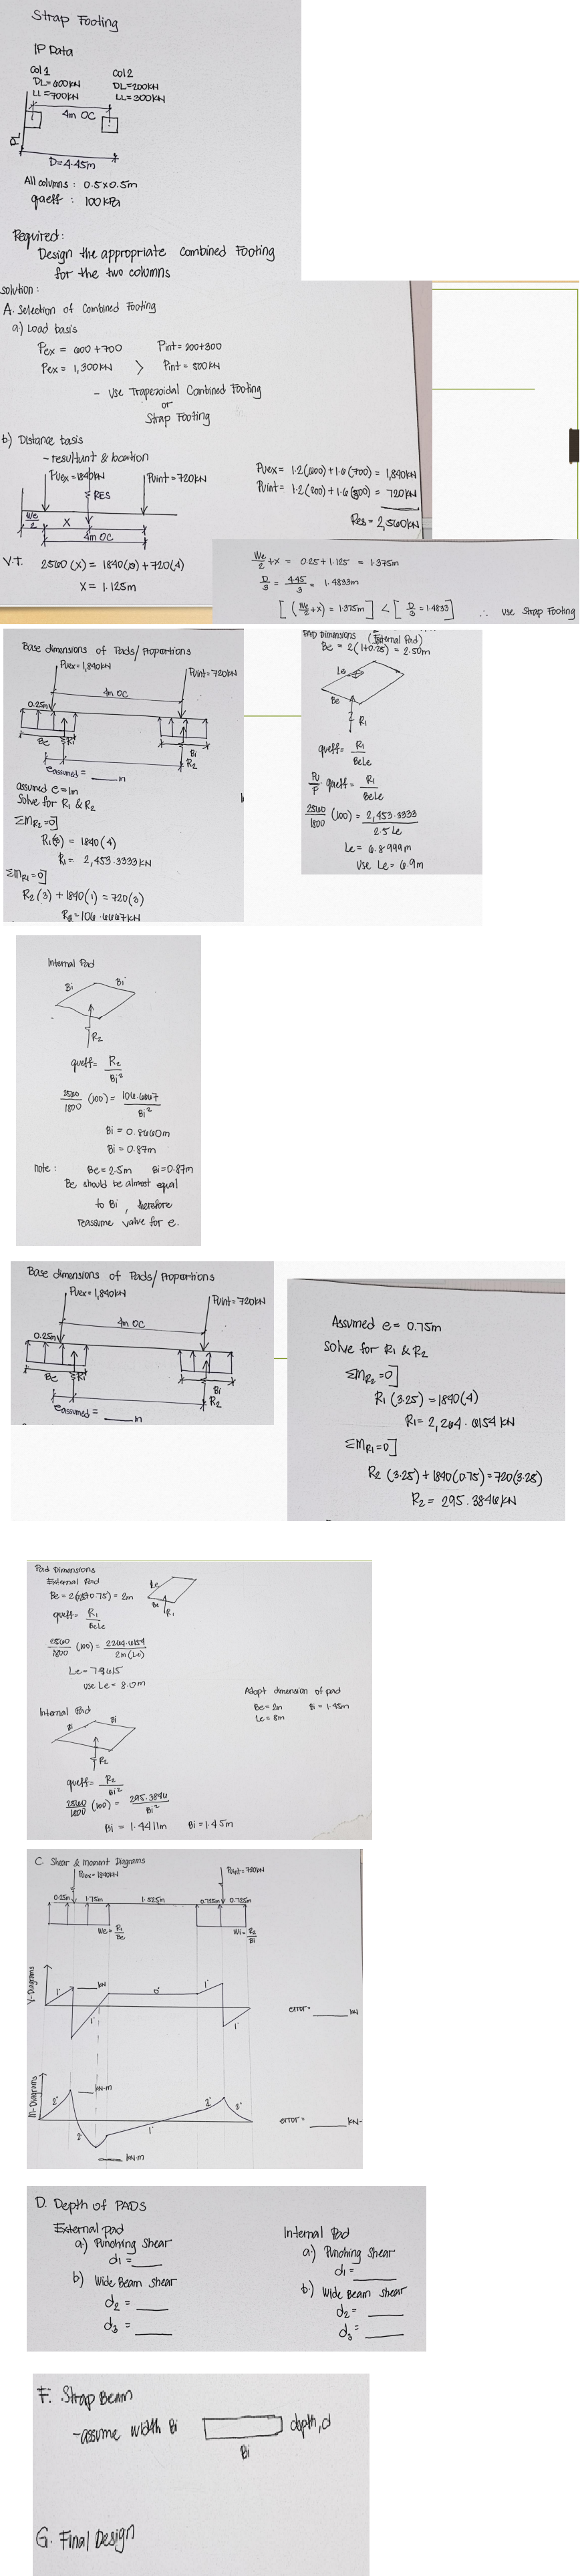 Strap Footing
IP Data
Col 1
DL=600kN
LL=700kN
Col 2
DL=200kN
LL=300kN
4m OC
PL
D=4.45m
All columns : 0.5x0.5m
qaeff : 100 kPa
Required:
Design the appropriate combined Footing
for the two columns
solution:
A. Selection of Combined Footing
a) Load basis
Pex = 600+700
Pint = 200+300
Pex = 1,300kN > Pint = 500kN
- Use Trapezoidal Combined Footing
or
Strap Footing
b) Distance basis
- resultant & location
Puex=1840kN
RES
Puint=720kN
We/2
X
4m OC
Puex= 1.2(600)+1.6(700) = 1,840kN
Puint= 1.2(200)+1.6(300) = 720kN
Res = 2,560kN
V.T. 2560(x) = 1840(0)+720(4)
X= 1.125m
We/2 +x = 0.25+1.125 = 1.375m
D/3 = 4.45/3 = 1.4833m
[(We/2+x) = 1.375m] < [D/3 = 1.4833] ∴ use Strap Footing
Base dimensions of Pads/Proportions
Puex=1,840kN
Puint=720kN
4m OC
0.25m
Be
R1
Bi
R2
eassumed = ___ m
assumed e=1m
Solve for R1 & R2
ΣMR2=0]
R1(3) = 1840(4)
R1= 2,453.3333kN
ΣMR1=0]
R2(3) + 1840(1) = 720(3)
R2=106.6667kN
Pad Dimensions (External Pad)
Be = 2(1+0.25) = 2.50m
Le
Be
R1
queff= R1/BeLe
Pu/P qaeff= R1/BeLe
2560/1800 (100) = 2,453.3333/2.5Le
Le= 6.8999m
Use Le= 6.9m
Internal Pad
Bi
Bi
R2
queff= R2/Bi²
2560/1800 (100) = 106.6667/Bi²
Bi = 0.8660m
Bi = 0.87m
note : Be=2.5m Bi=0.87m
Be should be almost equal
to Bi, therefore
reassume value for e.
Base dimensions of Pads/Proportions
Puex=1,840kN
Puint=720kN
4m OC
0.25m
Be
R1
Bi
R2
eassumed = ___ m
Assumed e= 0.75m
Solve for R1 & R2
ΣMR2=0]
R1(3.25) =1840(4)
R1= 2,264.6154 kN
ΣMR1=0]
R2(3.25)+1840(0.75)=720(3.25)
R2 = 295.3846kN
Pad Dimensions
External Pad
Le
Be
R1
queff= R1/BeLe
2560/1800 (100) = 2264.6154/2m(Le)
use Le= 8.0m
Adopt dimension of pad
Be=2m Bi=1.45m
Le=8m
Internal Pad
Bi
Bi
R2
queff= R2/Bi²
2560/1800 (100) = 295.3846/Bi²
Bi = 1.4411m Bi=1.45m
C. Shear & Moment Diagrams
Puex=1840kN
Puint=720kN
0.25m 1.75m 1.525m 0.725m 0.725m
We= R1/Be
Wi= R2/Bi
V-Diagrams
1°
___ kN
1°
0°
1°
1°
error= ___ kN
M-Diagrams
2°
___ kN-m
2°
1°
2°
2°
error= ___ kN-
___ kN-m
D. Depth of PADS
External pad
a) Punching Shear
d1 = ___
b) Wide Beam Shear
d2 = ___
d3 = ___
Internal Pad
a) Punching Shear
d1= ___
b) Wide Beam Shear
d2= ___
d3= ___
F. Strap Beam
-assume width Bi
depth, d
Bi
G. Final Design